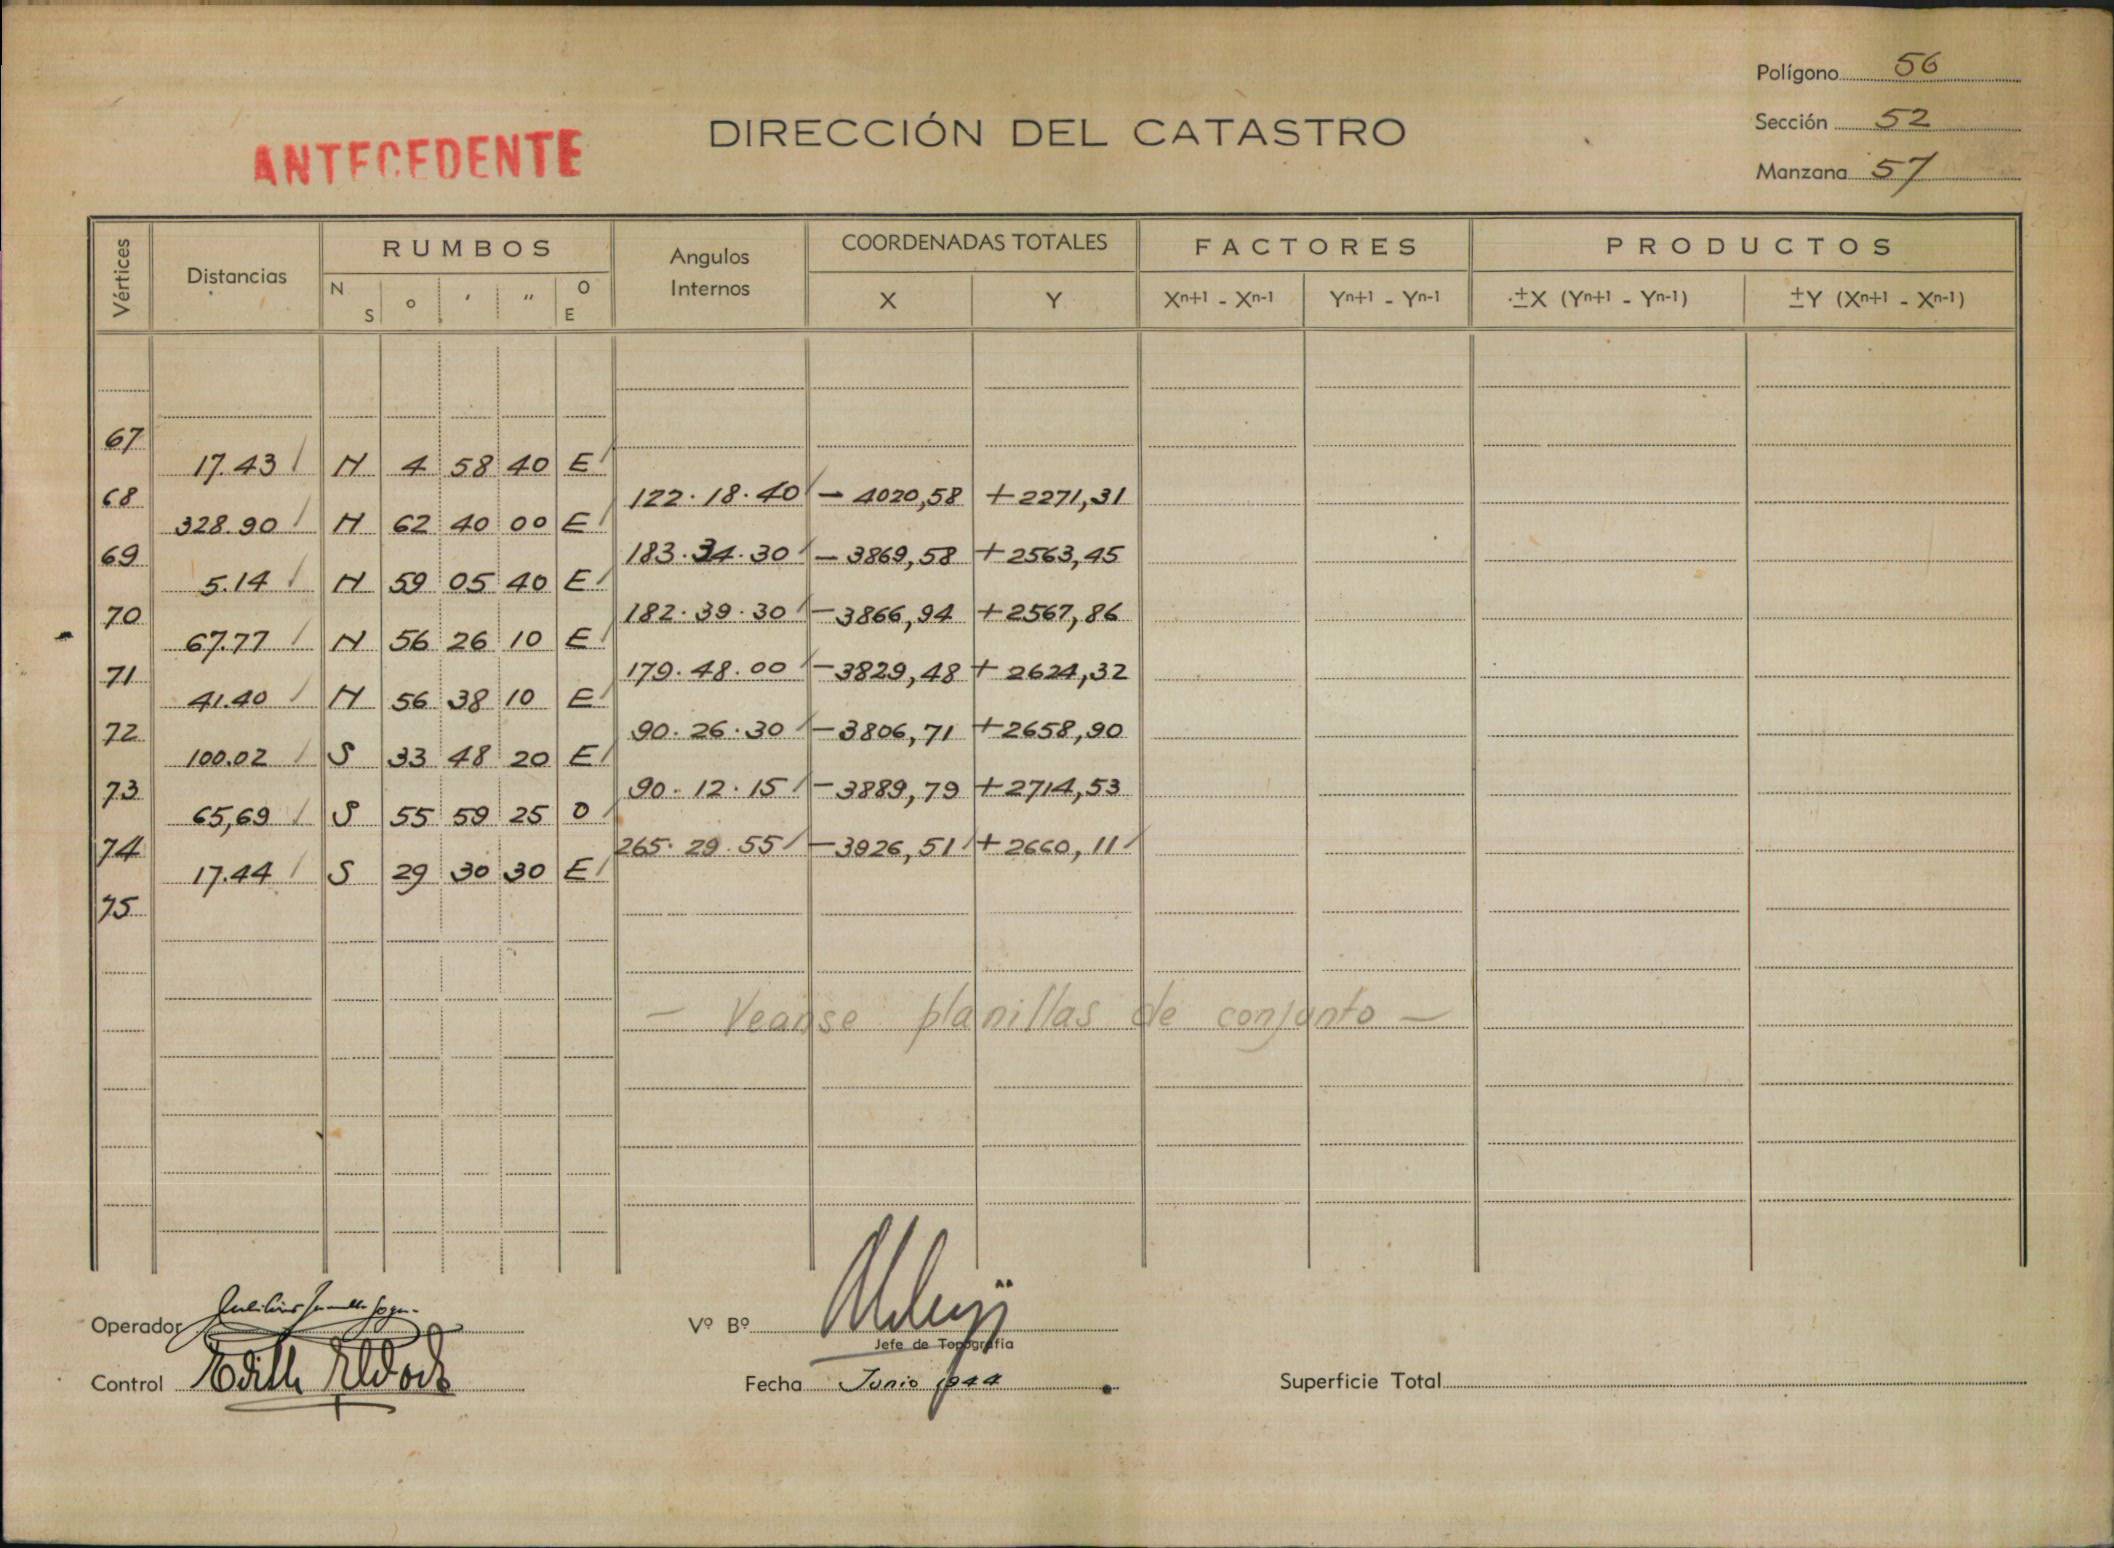 Polígono 56
ANTECEDENTE
DIRECCIÓN DEL CATASTRO
Sección 52
Manzana 57
Vértices Distancias RUMBOS Angulos Internos COORDENADAS TOTALES FACTORES PRODUCTOS
N S o ' " O E X Y Xn+1 - Xn-1 Yn+1 - Yn-1 ±X (Yn+1 - Yn-1) ±Y (Xn+1 - Xn-1)
67
17.43 N 4 58 40 E
68 122.18.40 - 4020,58 +2271,31
328.90 N 62 40 00 E
69 183.34.30 - 3869,58 +2563,45
5.14 N 59 05 40 E
70 182.39.30 -3866,94 +2567,86
67.77 N 56 26 10 E
71 179.48.00 -3829,48 +2624,32
41.40 N 56 38 10 E
72 90.26.30 -3806,71 +2658,90
100.02 S 33 48 20 E
73 90.12.15 -3889,79 +2714,53
65,69 S 55 59 25 O
74 265.29.55 -3926,51 +2660,11
17.44 S 29 30 30 E
75
- Veanse planillas de conjunto -
Operador
Vº Bº
Jefe de Topografía
Control Edith
Fecha Junio 1944
Superficie Total